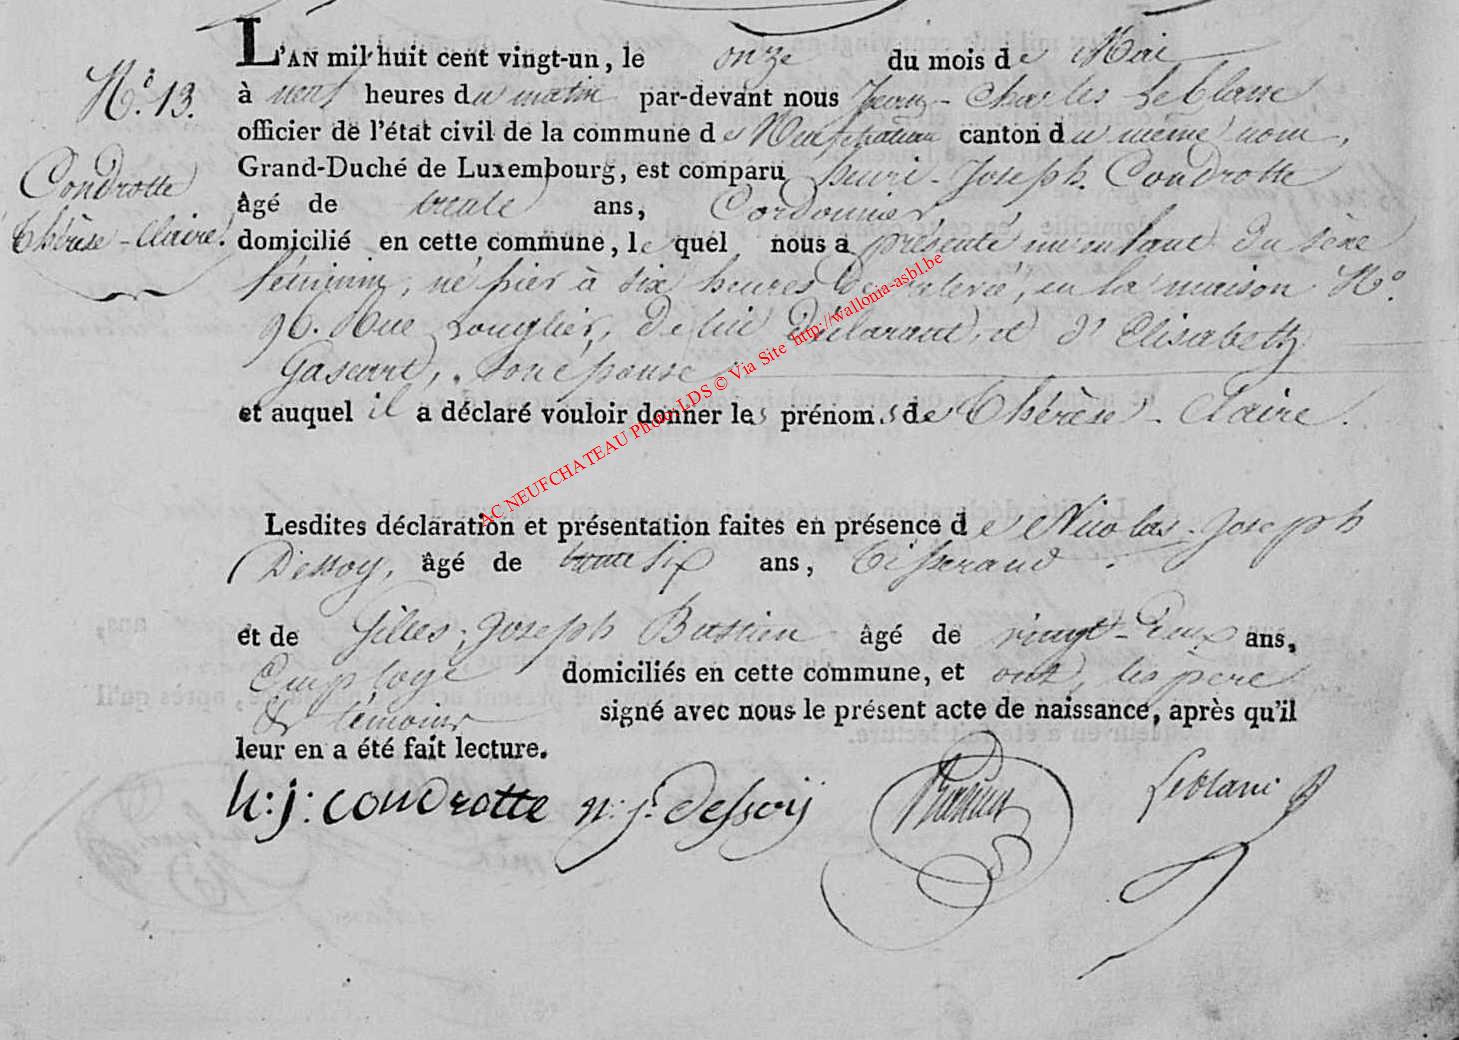 L'AN mil huit cent vingt-un, le onze du mois de Mai
N.° 13.
à neuf heures du matin par-devant nous Jean-Charles Leblanc
officier de l'état civil de la commune de Neufchateau canton du même nom,
Grand-Duché de Luxembourg, est comparu henri-Joseph Condrotte
Condrotte
Thérèse-Claire.
âgé de trente ans, Cordonnier,
domicilié en cette commune, lequel nous a présenté un enfant du sèxe
féminin, né hier à six heures de relevée, en la maison N.°
96. Rue Longlier, de lui déclarant, et d'Elisabeth
Gascard, son épouse
et auquel il a déclaré vouloir donner les prénoms de Thérèse-Claire.
AC NEUFCHATEAU Photo: LDS © Via Site http://wallonia-asbl.be
Lesdites déclaration et présentation faites en présence de Nicolas-Joseph
Dessoy, âgé de trente six ans, tisserand.
et de Gilles-Joseph Bastien âgé de vingt-deux ans,
Employé domiciliés en cette commune, et ont, les père
& témoins signé avec nous le présent acte de naissance, après qu'il
leur en a été fait lecture.
h:j: condrotte n:j: dessoij Bastien Leblanc